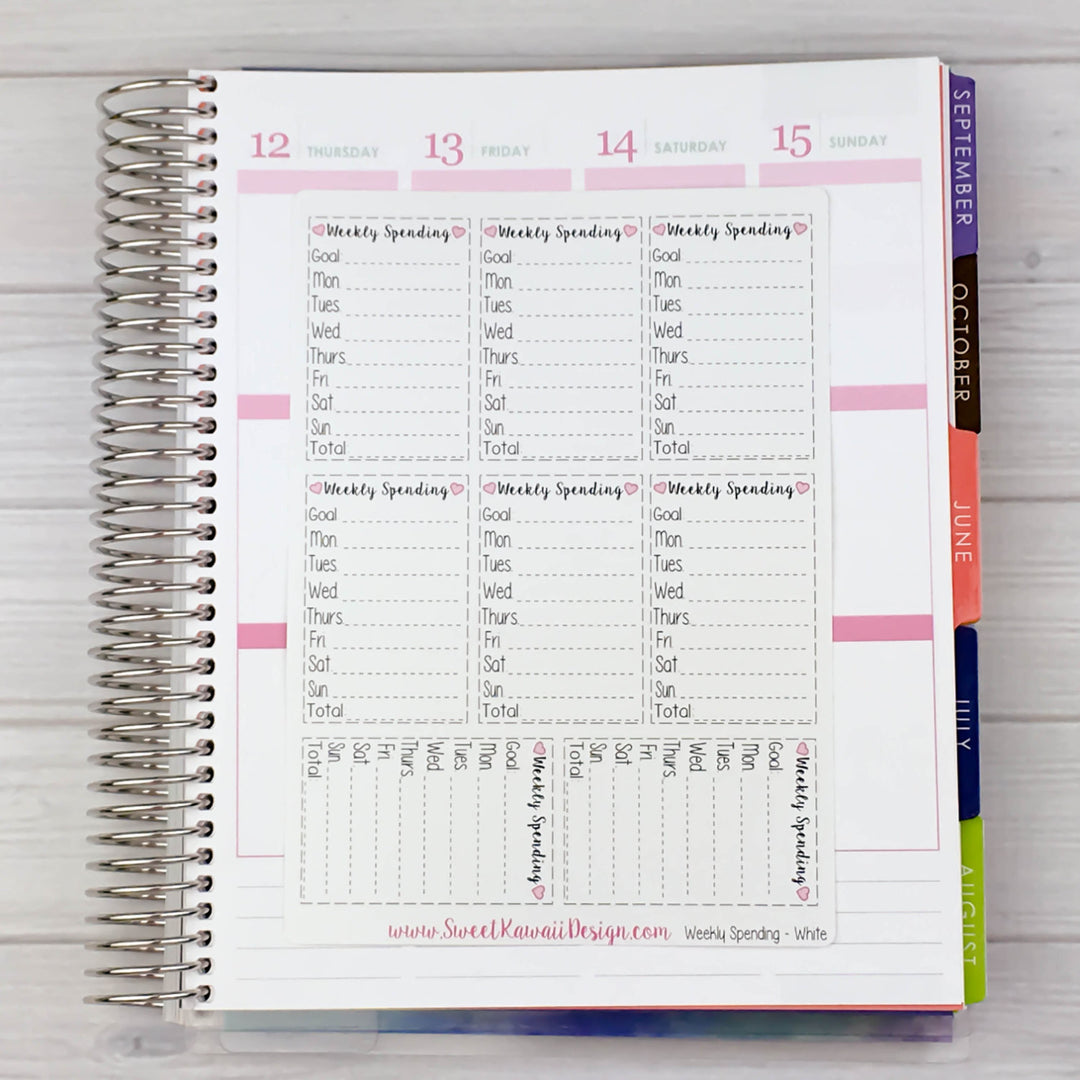 12 THURSDAY 13 FRIDAY 14 SATURDAY 15 SUNDAY
Weekly Spending
Goal
Mon
Tues
Wed
Thurs
Fri
Sat
Sun
Total
Weekly Spending
Goal
Mon
Tues
Wed
Thurs
Fri
Sat
Sun
Total
Weekly Spending
Goal
Mon
Tues
Wed
Thurs
Fri
Sat
Sun
Total
Weekly Spending
Goal
Mon
Tues
Wed
Thurs
Fri
Sat
Sun
Total
Weekly Spending
Goal
Mon
Tues
Wed
Thurs
Fri
Sat
Sun
Total
Weekly Spending
Goal
Mon
Tues
Wed
Thurs
Fri
Sat
Sun
Total
Weekly Spending
Goal
Mon
Tues
Wed
Thurs
Fri
Sat
Sun
Total
Weekly Spending
Goal
Mon
Tues
Wed
Thurs
Fri
Sat
Sun
Total
www.SweetKawaiiDesign.com Weekly Spending - White
SEPTEMBER
OCTOBER
JUNE
JULY
AUGUST